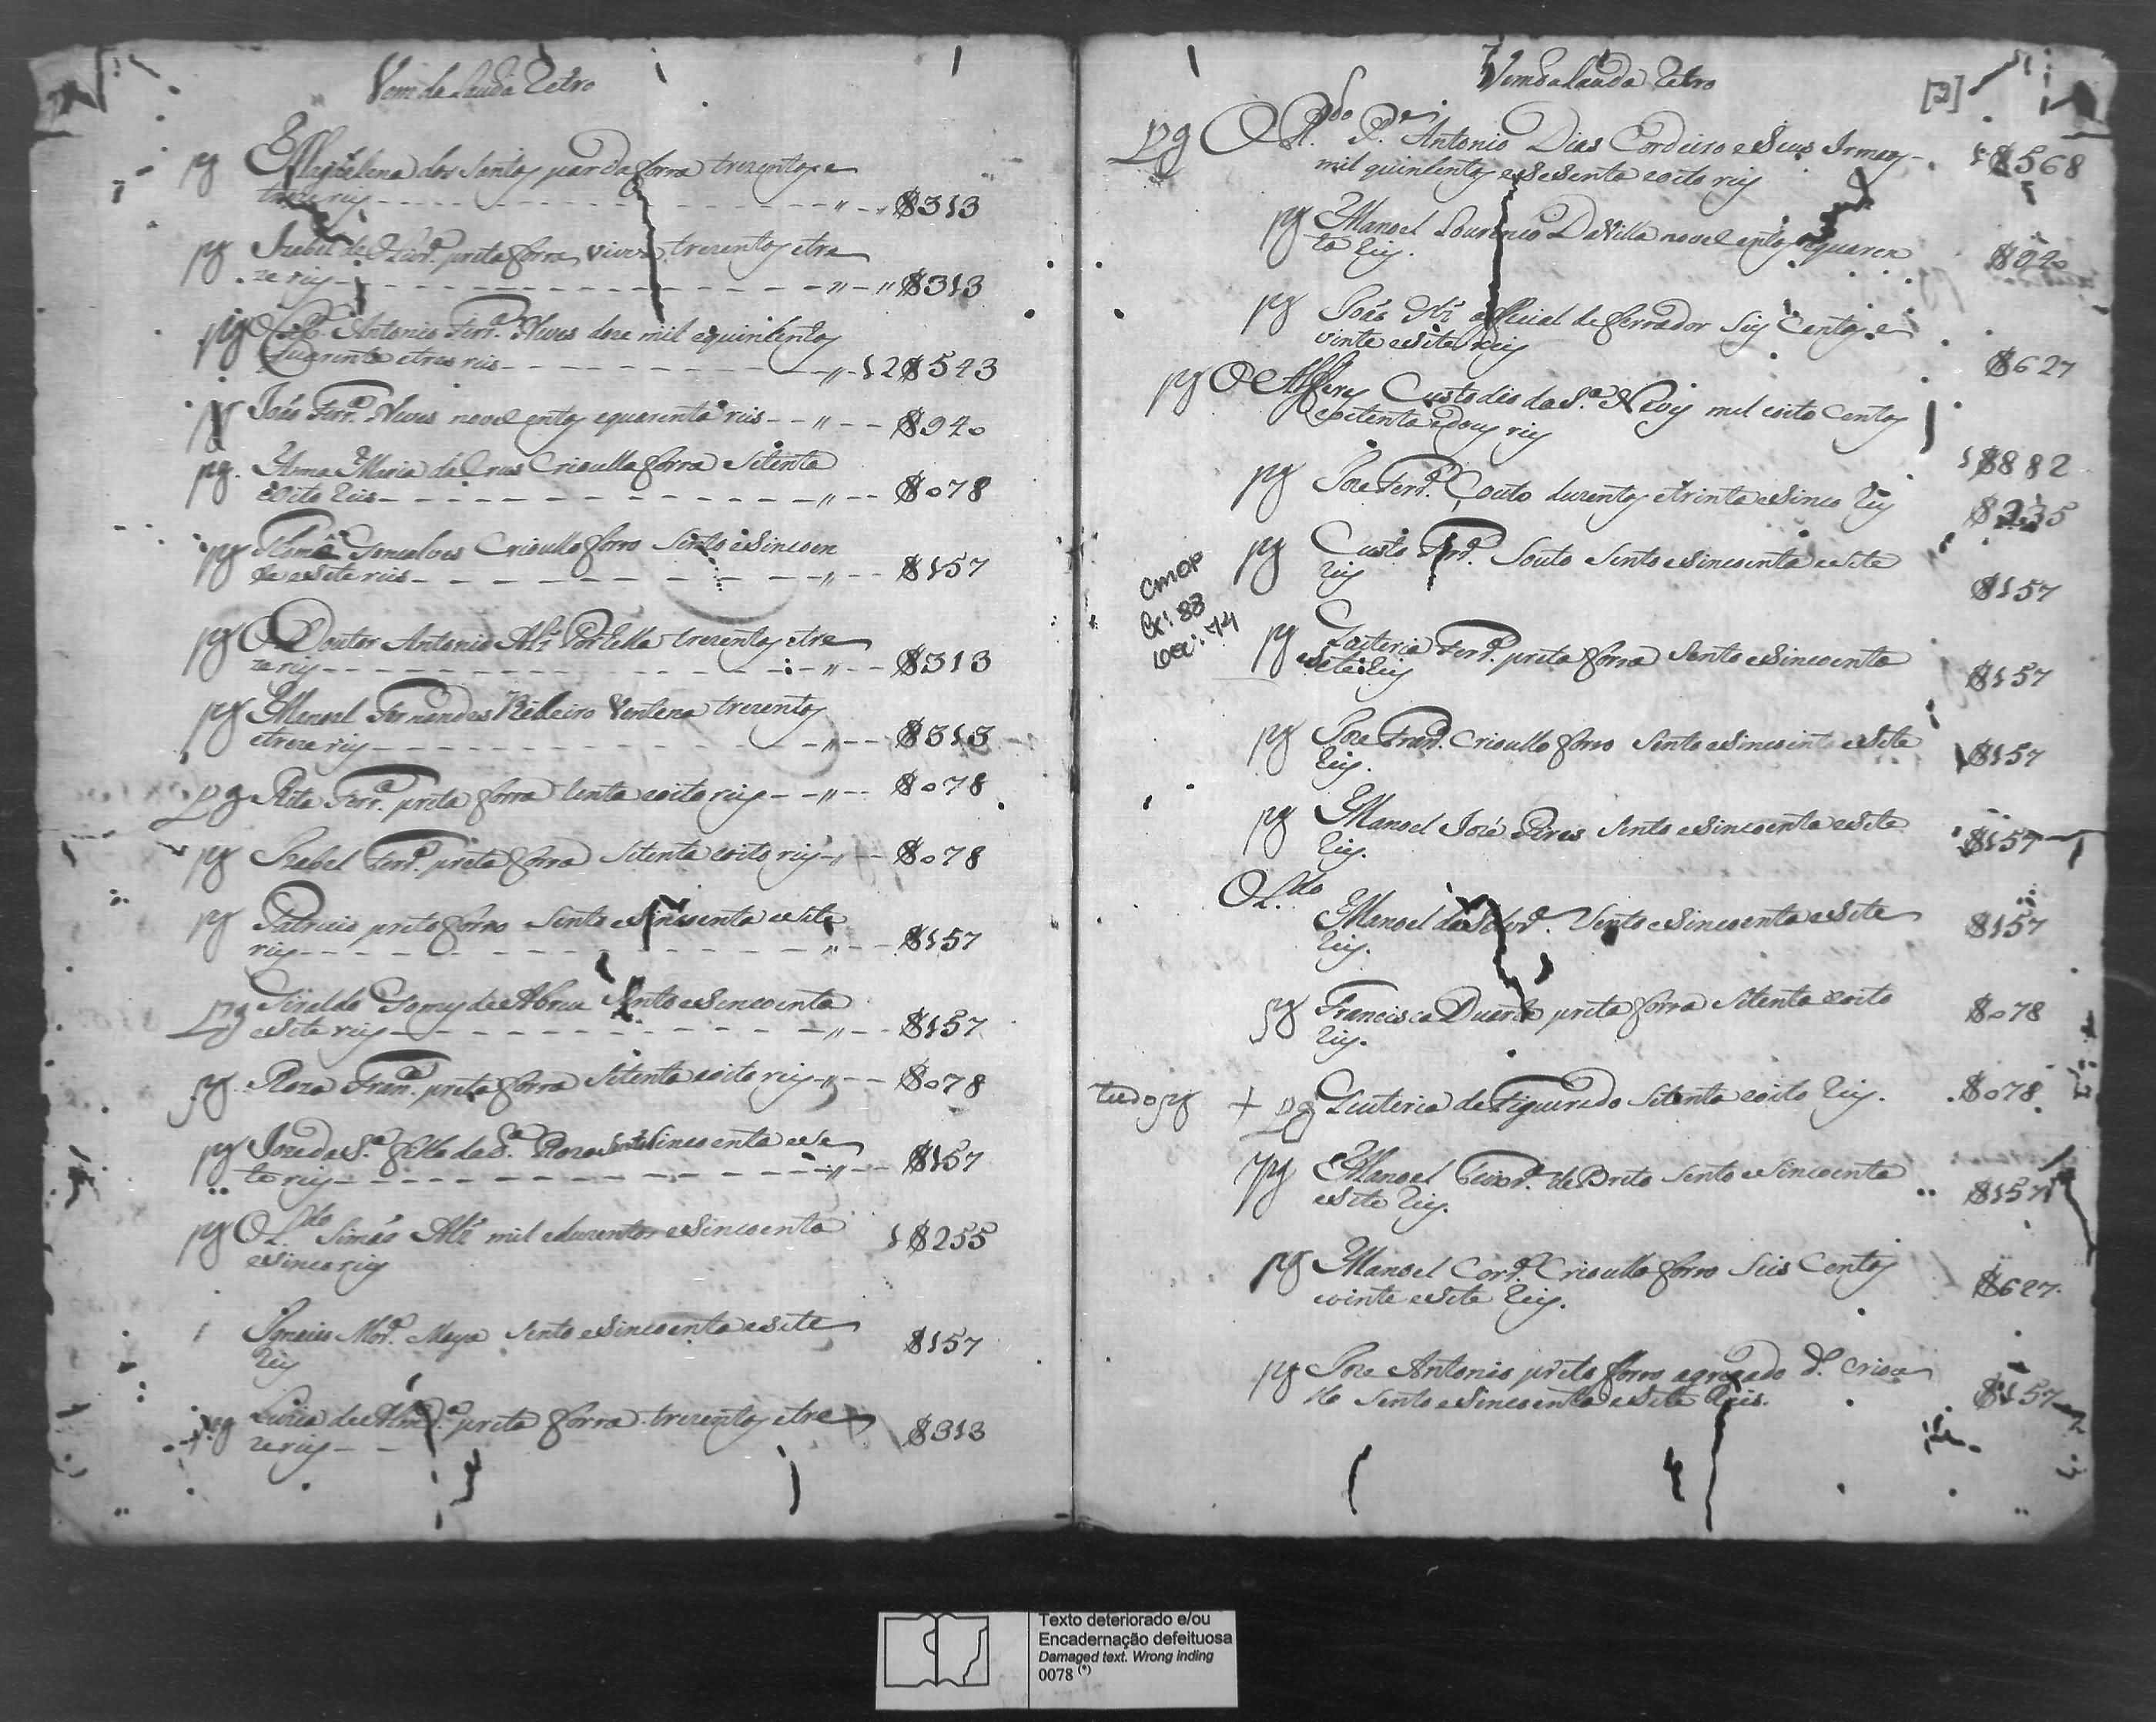 Vem da Lauda Retro
pg Magdelena dos Santos parda forra trezentos e
treze reis $313
pg Izabel de preta forra viuva trezentos etre
ze reis $313
pg O Antonio Ferr.ª Alves doze mil equinhentos
Quarenta etres reis 12$543
pg João Ferr.ª Alves novecentos equarenta reis $940
pg. Anna Maria da Crus Crioulla forra Setenta
eoito Reis $078
pg Gonçalves Crioullo forro Sento eSincoen
ta eSete reis $157
pg O Doutor Antonio Alz Portella trezentos etre
ze reis $313
pg Manoel Fernandes Ribeiro Ventena trezentos
etreze reis $313
pg Rita Ferr.ª preta forra Centa eoito reis $078
pg Izabel Ferr.ª preta forra Setenta eoito reis $078
pg Patricio preto forro Sento eSincoenta eSete
reis $157
pg Giraldo Gomes de Abreu Sento eSincoenta
eSete reis $157
pg. Roza Fran.ca preta forra Setenta eoito reis $078
pg Joze da S.ª filho da S.ª Roza Sento eSincoenta eSe
te reis $157
pg O L.do Simão Alz mil eduzentos eSincoenta
eSinco reis 1$255
Ignacio Mor.ª Maya Sento eSincoenta eSete
Reis $157
pg Luzia de Alm.da preta forra trezentos etre
ze reis $313
Vem da Lauda Retro
[3]
pg O R.do P.e Antonio Dias Cordeiro eSeus Irmaos
mil quinhentos eSeSenta eoito reis 1$568
pg Manoel Lourenço DaVilla novecentos equaren
ta Reis. $940
pg João Alz official de ferrador Seis Centos e
vinte eSete Reis $627
pg O Alferes Custodio da S.ª Neves mil eoito Centos
eoitenta edous reis 1$882
pg Joze Ferr.ª Couto duzentos etrinta eSinco Reis $235
CMOP
Cx: 88
Doc: 74
pg Custo Ferr.ª Souto Sento eSincoenta eSete
Reis $157
pg Quiteria Ferr.ª preta forra Sento eSincoenta
eSete Reis $157
pg Joze Fran.co Crioullo forro Sento eSincoenta eSete
Reis. $157
pg Manoel José Pires Sento eSincoenta eSete
Reis. $157
O L.do
Manoel da Silv.ª Sento eSincoenta eSete
Reis. $157
pg Francisca Duarte preta forra Setenta eoito
Reis. $078
tudo pg + pg Quiteria de Figueiredo Setenta eoito Reis. $078
pg Manoel de Brito Sento eSincoenta
eSete Reis. $157
pg Manoel Cord.º Crioullo forro Seis Centos
evinte eSete Reis. $627
pg Joze Antonio preto forro agregado d.º Criou
llo Sento eSincoenta eSete Reis. $157
Texto deteriorado e/ou
Encadernação defeituosa
Damaged text. Wrong inding
0078 (*)